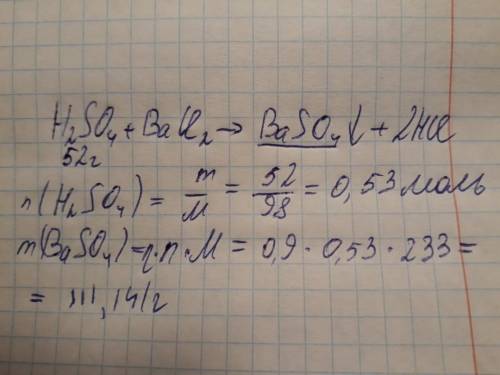 H₂SO₄ + BaCl₂ → BaSO₄↓ + 2HCl
52г
n(H₂SO₄) = m/M = 52/98 = 0,53 моль
m(BaSO₄) = η·n·M = 0,9 · 0,53 · 233 =
= 111,141г